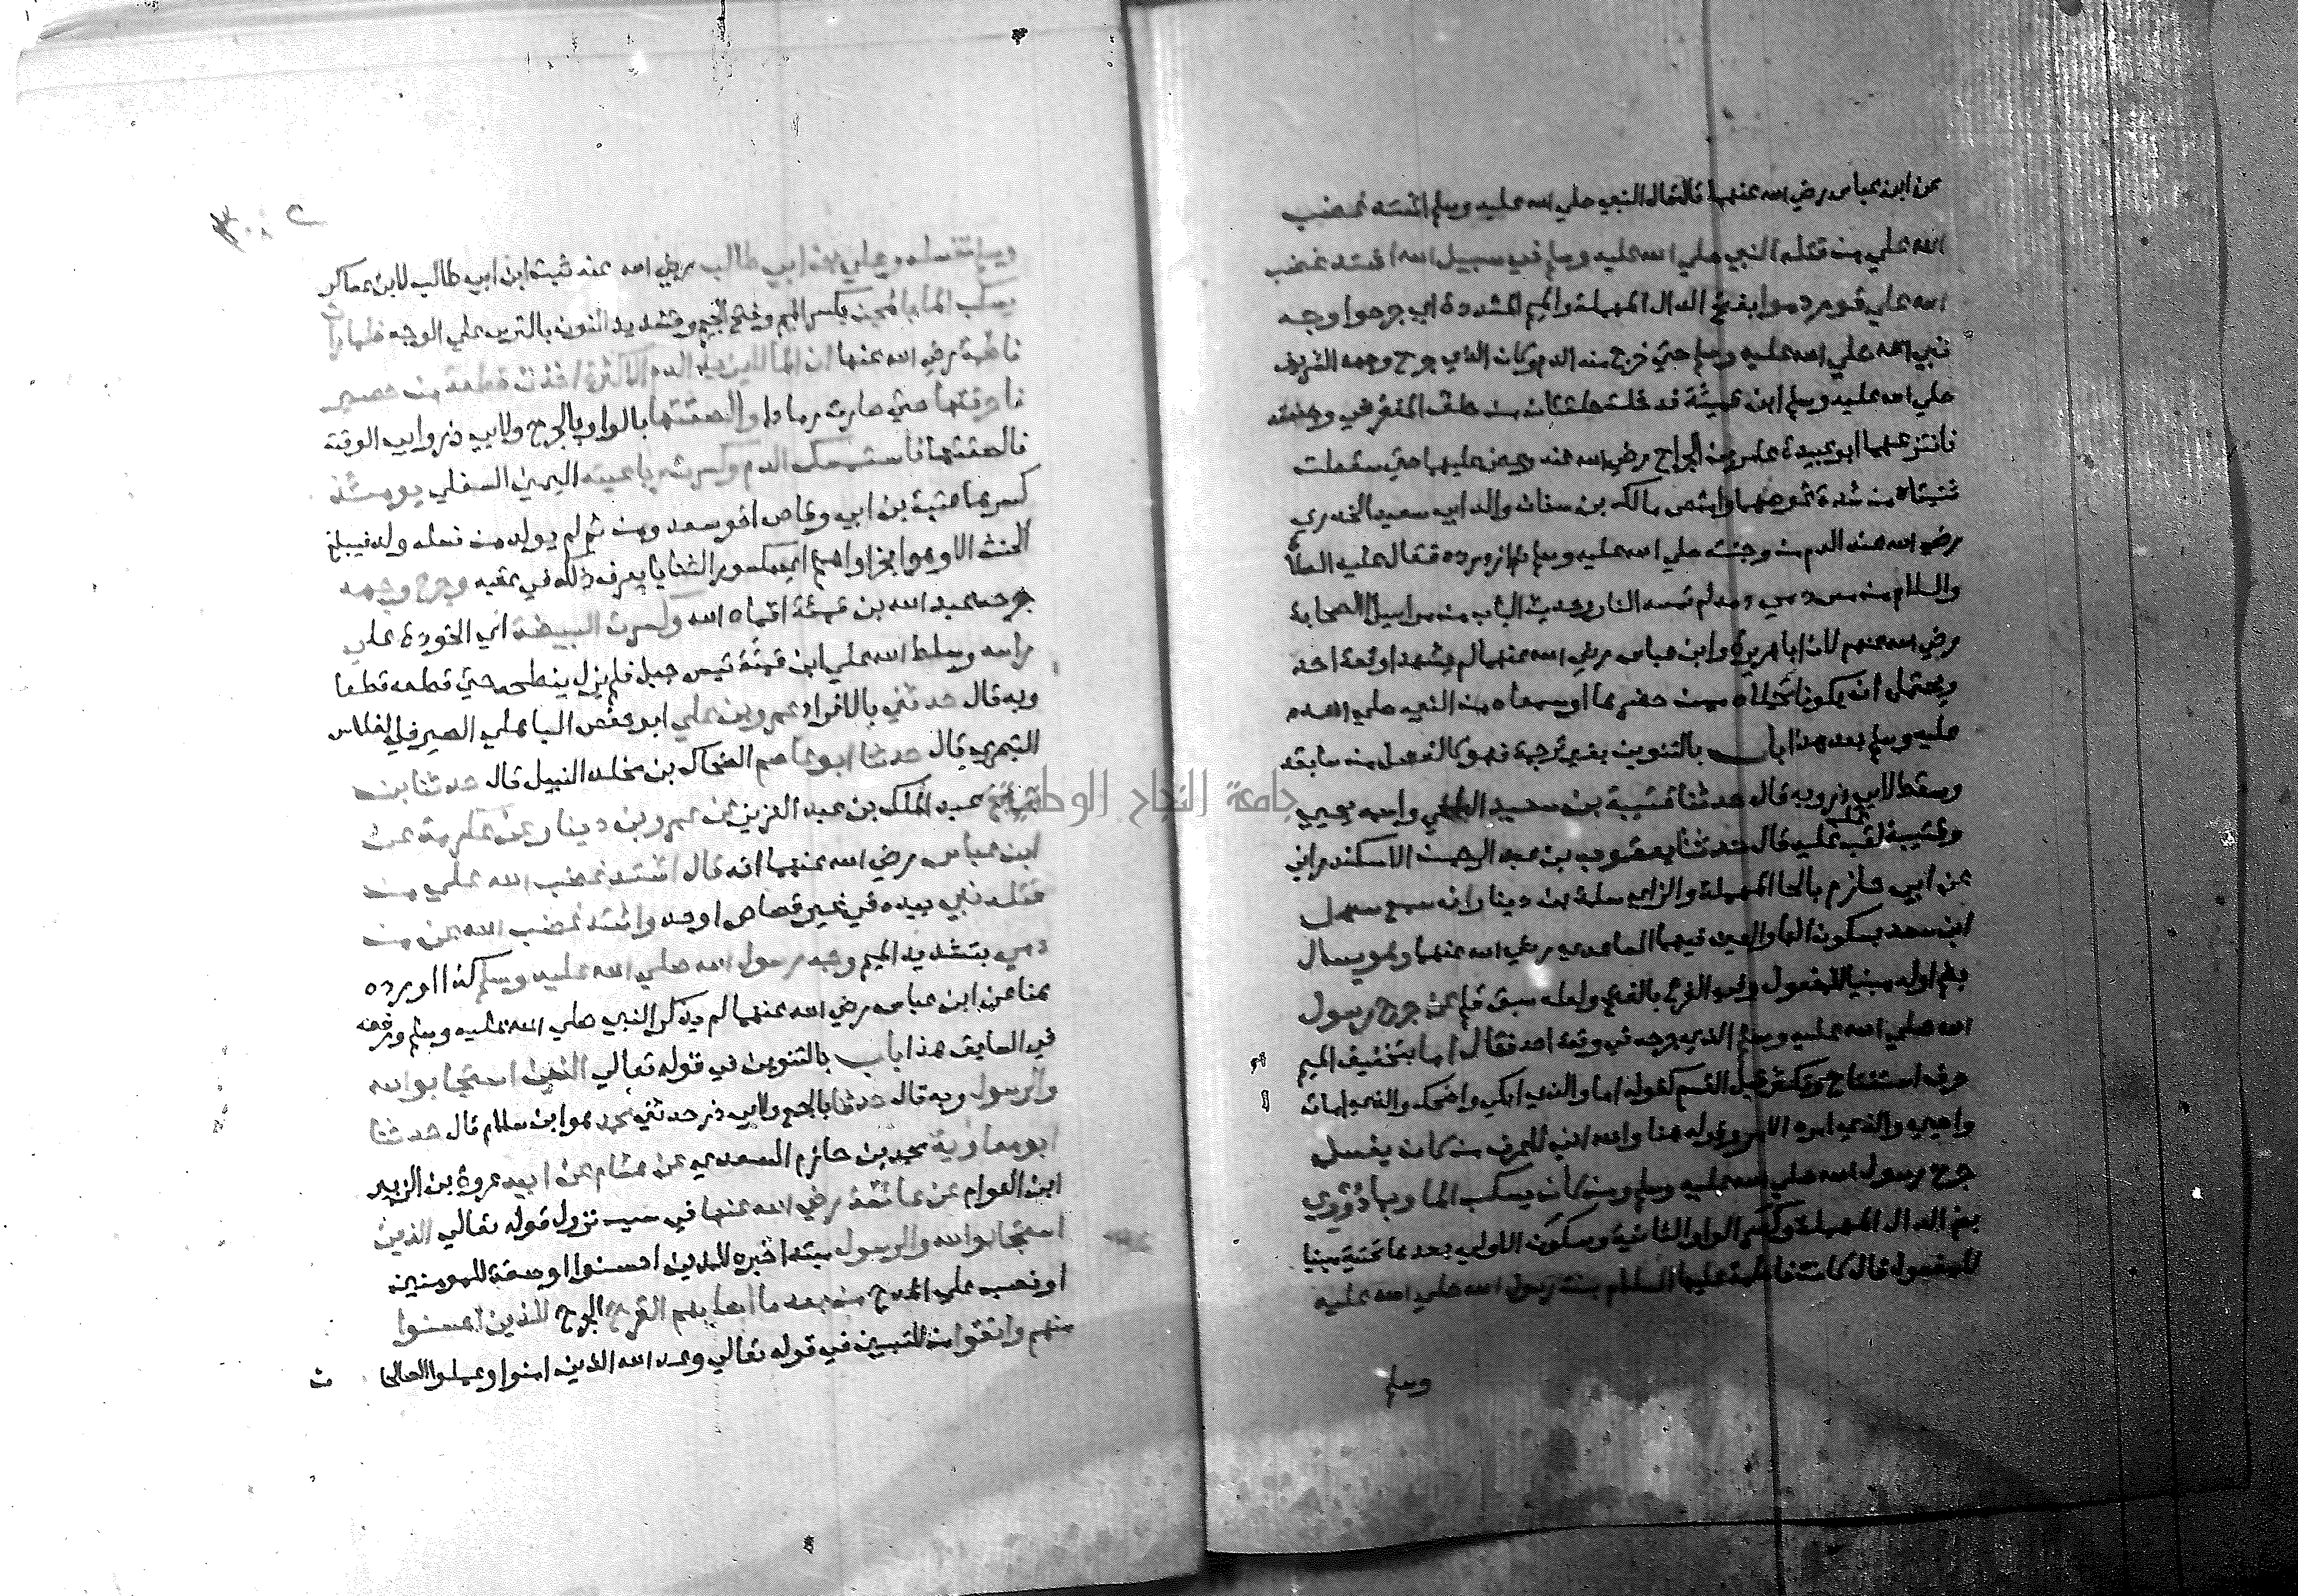 عن ابن عباس رضي الله عنهما قال قال النبي صلي الله عليه وسلم اشتد غضب
الله علي من قتله النبي صلي الله عليه وسلم في سبيل الله اشتد غضب
الله علي قوم دموا بفتح الدال المهملة والميم المشددة اي جرحوا وجه
نبي الله صلي الله عليه وسلم حتي خرج منه الدم وكان الذي جرح وجهه الشريف
صلي الله عليه وسلم ابن قميئة فدخلت حلقتان من حلق المغفر في وجنته
فانتزعهما ابو عبيدة عامر بن الجراح رضي الله عنه وعض عليهما حتي سقطت
ثنيتاه من شدة غوصهما وامتص مالك بن سنان والد ابي سعيد الخدري
رضي الله عنه الدم من وجنته صلي الله عليه وسلم ثم ازدرده فقال عليه الصلاة
والسلام من مس دمي دمه لم تمسه النار وحديث الباب من مراسيل الصحابة
رضي الله عنهم لان ابا هريرة وابن عباس رضي الله عنهما لم يشهدا وقعة احد
ويحتمل ان يكونا تحملاه ممن حضرها او سمعاه من النبي صلي الله
عليه وسلم بعد هذا باب بالتنوين بغير ترجمة فهو كالفصل من سابقه
وسقط لابي ذر وبه قال حدثنا قتيبة بن سعيد البلخي واسمه يحيي
وقتيبة لقب غلب عليه قال حدثنا يعقوب بن عبد الرحمن الاسكندراني
عن ابي حازم بالحا المهملة والزاي سلمة بن دينار انه سمع سهل
ابن سعد بسكون الها والعين فيهما الساعدي رضي الله عنهما وهو يسال
بضم اوله مبنيا للمفعول عن جرح رسول
الله صلي الله عليه وسلم الذي جرحه في وقعة احد فقال اما بتخفيف الميم
حرف استفتاح ويكثر قبل القسم كقوله اما والذي ابكي واضحك والذي امات
واحيي والذي امره الامر وقوله هنا والله اني لاعرف من كان يغسل
جرح رسول الله صلي الله عليه وسلم ومن كان يسكب الما وبما دووي
بضم الدال المهملة وكسر الواو الثانية وسكون الاولي بعدها تحتية مبنيا
للمفعول قال كانت فاطمة عليها السلام بنت رسول الله صلي الله عليه
وسلم
٣٠٨
وسلم تغسله وعلي بن ابي طالب رضي الله عنه ثبت ابن ابي طالب لابن عساكر
يسكب الما بالمجن بكسر الميم وفتح الجيم وتشديد النون بالترس علي الوجه فلما رات
فاطمة رضي الله عنها ان الما لا يزيد الدم الا كثرة اخذت قطعة من حصير
فاحرقتها حتي صارت رمادا والصقتها بالواو بالجرح ولابي ذر وابي الوقت
فالصقتها فاستمسك الدم وكسرت رباعيته اليمني السفلي يومئذ
كسرها عتبة بن ابي وقاص اخو سعد ومن ثم لم يولد من نسله ولد فيبلغ
الحنث الا وهو ابخر او اهتم اي مكسور الثنايا يعرف ذلك في عقبه وجرح وجهه
جرحه عبد الله بن قمئة اقماه الله وكسرت البيضة اي الخودة علي
راسه وسلط الله علي ابن قمئة تيس جبل فلم يزل ينطحه حتي قطعه قطعا
وبه قال حدثني بالافراد عمرو بن علي ابو حفص الباهلي الصيرفي الفلاس
البصري قال حدثنا ابو عاصم الضحاك بن مخلد النبيل قال حدثنا ابن
جريج عبد الملك بن عبد العزيز عن عمرو بن دينار عن عكرمة عن
ابن عباس رضي الله عنهما انه قال اشتد غضب الله علي من
قتله نبي بيده في غير قصاص او حد واشتد غضب الله علي من
دمي بتشديد الميم وجه رسول الله صلي الله عليه وسلم كذا اورده
هنا عن ابن عباس رضي الله عنهما لم يذكر النبي صلي الله عليه وسلم ورفعه
في السابق هذا باب بالتنوين في قوله تعالي الذين استجابوا لله
والرسول وبه قال حدثنا بالجمع ولابي ذر حدثني محمد هو ابن سلام قال حدثنا
ابو معاوية محمد بن حازم السعدي عن هشام عن ابيه عروة بن الزبير
ابن العوام عن عائشة رضي الله عنها في سبب نزول قوله تعالي الذين
استجابوا لله والرسول مبتدا خبره للذين احسنوا او صفة للمومنين
او نصب علي المدح من بعد ما اصابهم القرح الجرح للذين احسنوا
منهم واتقوا من للتبيين في قوله تعالي وعد الله الذين امنوا وعملوا الصالحات